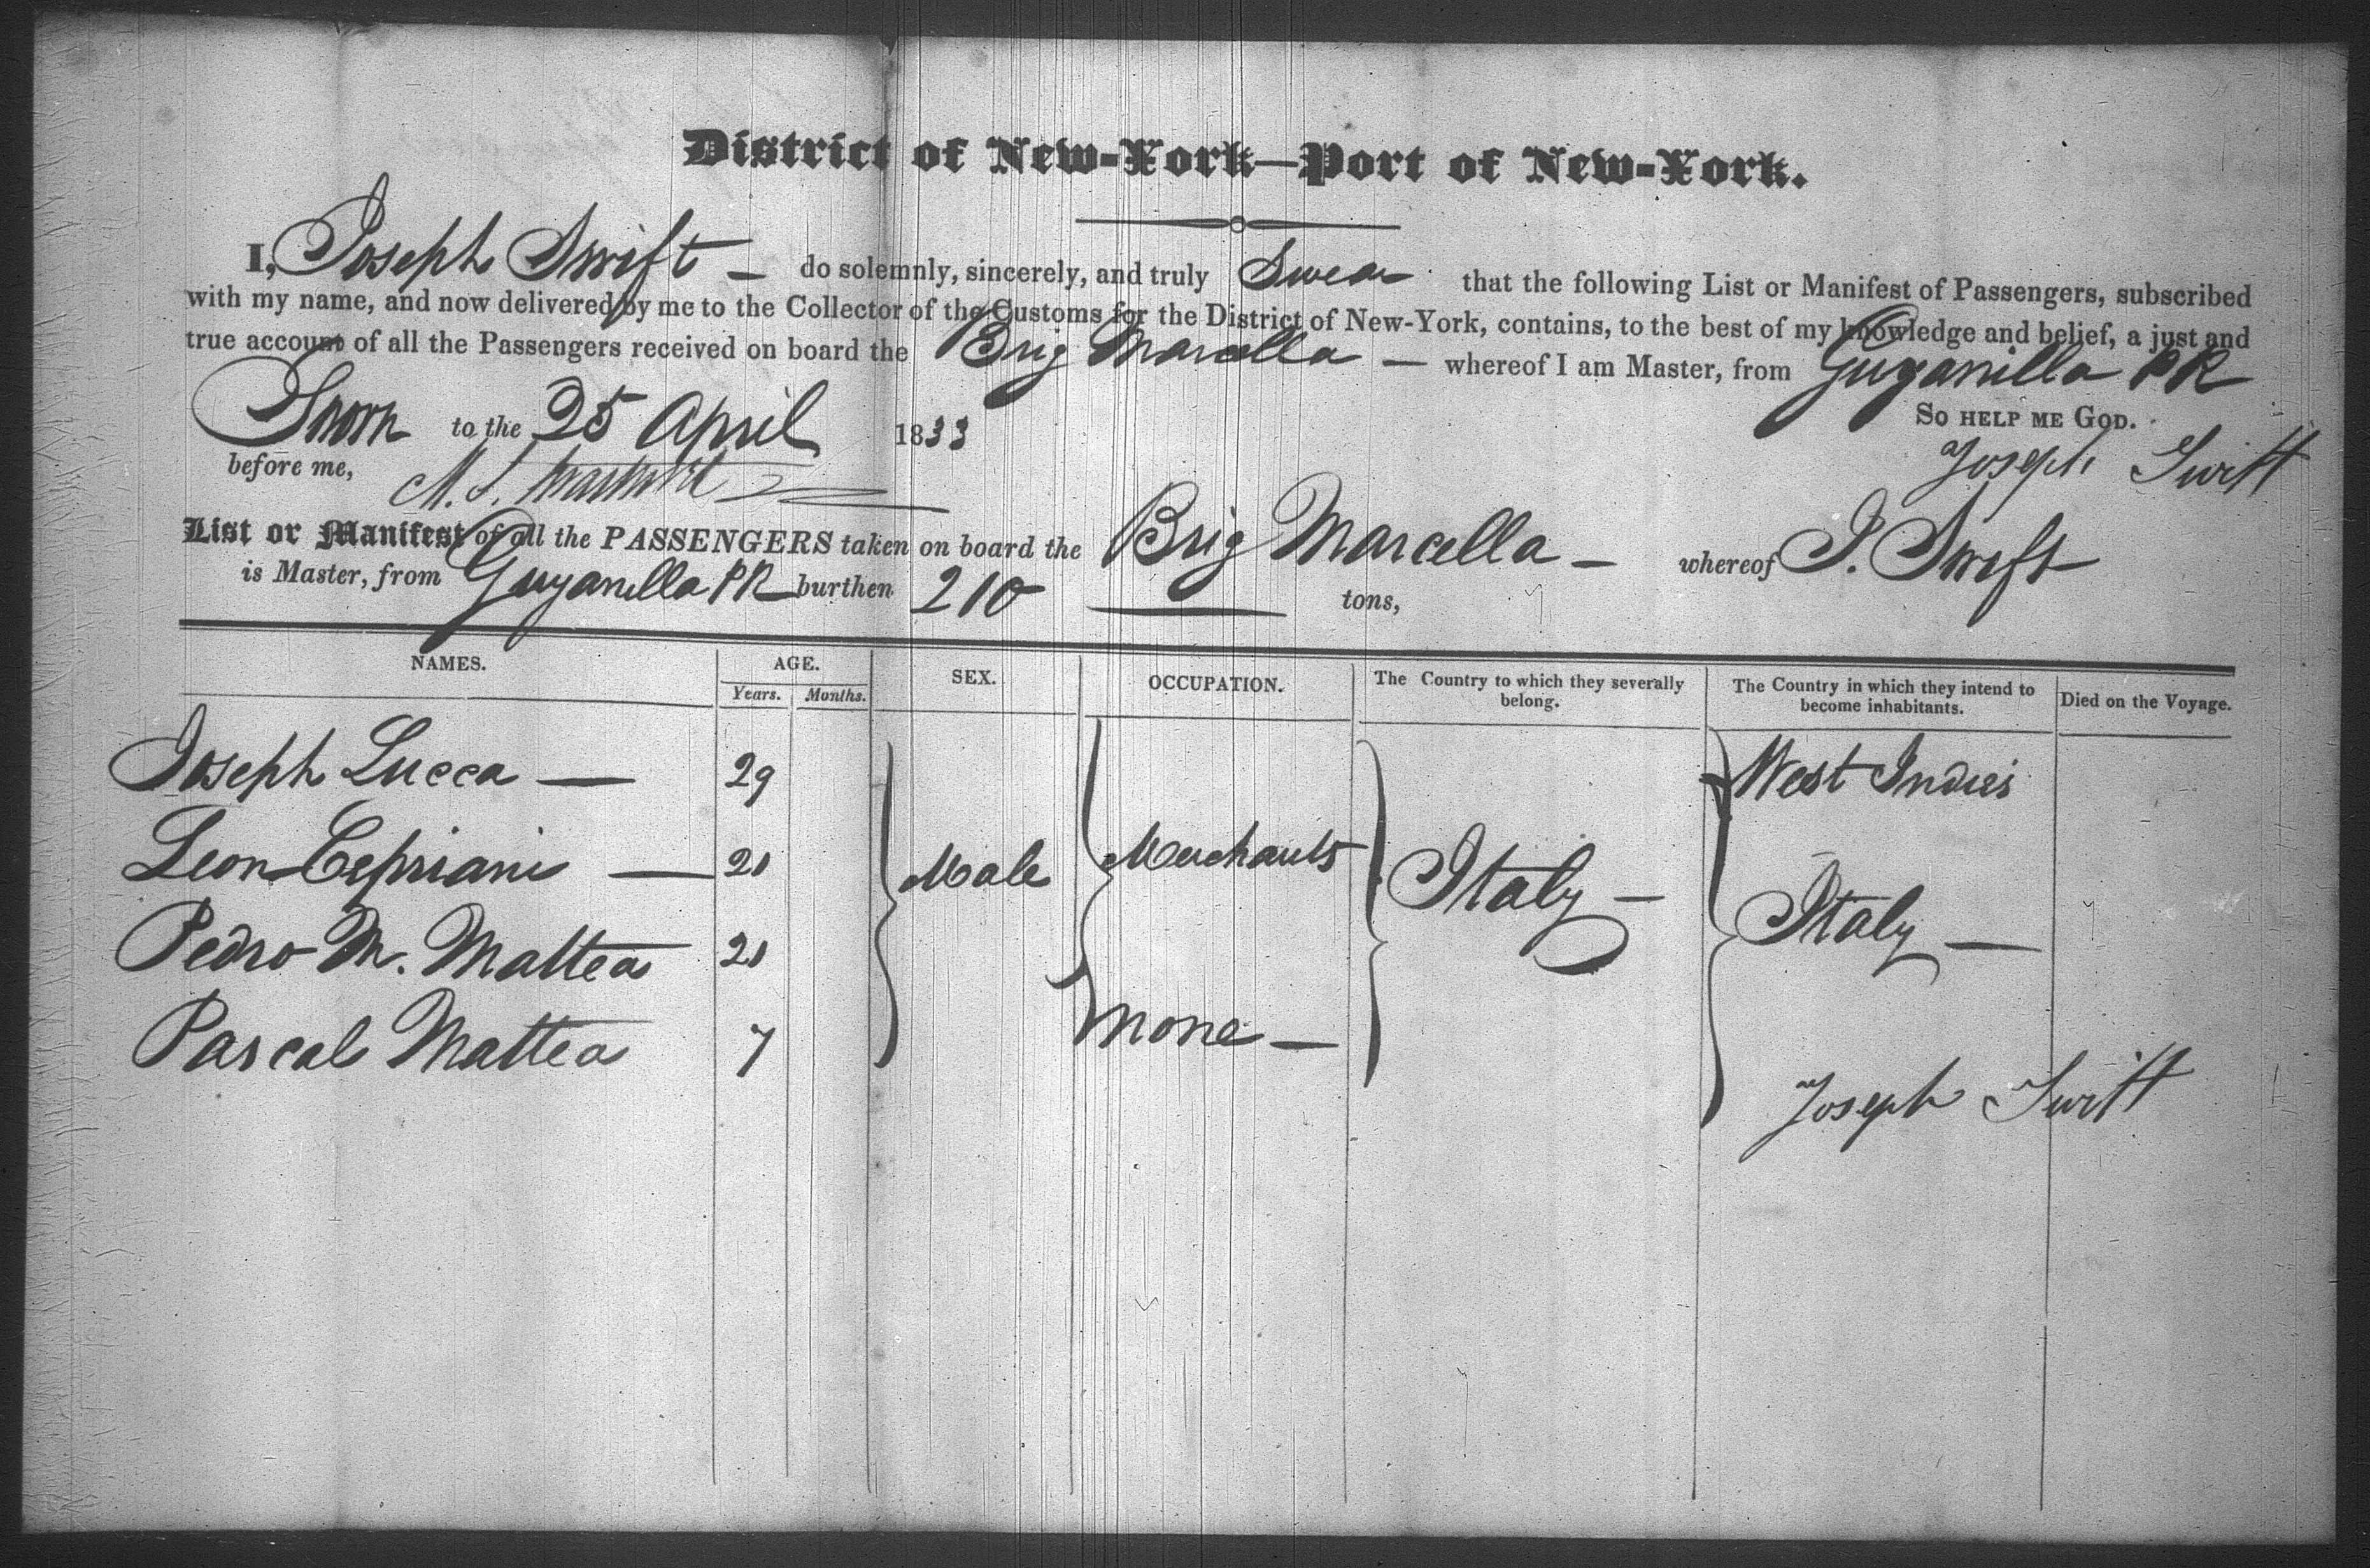 District of New-York—Port of New-York.
I, Joseph Swift — do solemnly, sincerely, and truly Swear that the following List or Manifest of Passengers, subscribed
with my name, and now delivered by me to the Collector of the Customs for the District of New-York, contains, to the best of my knowledge and belief, a just and
true account of all the Passengers received on board the Brig Marcella — whereof I am Master, from Guyanilla PR
So help me God.
Sworn to the 25 April 1833
Joseph Swift
before me,
List or Manifest of all the PASSENGERS taken on board the Brig Marcella — whereof J. Swift
is Master, from Guyanilla PR burthen 210 tons,
NAMES. AGE. SEX. OCCUPATION. The Country to which they severally belong. The Country in which they intend to become inhabitants. Died on the Voyage.
Years. Months.
Joseph Lucca — 29 West Indies
Leon Cepriani — 21 Male Merchants Italy — Italy —
Pedro M. Mattea 21
Pascal Mattea 7 None —
Joseph Swift